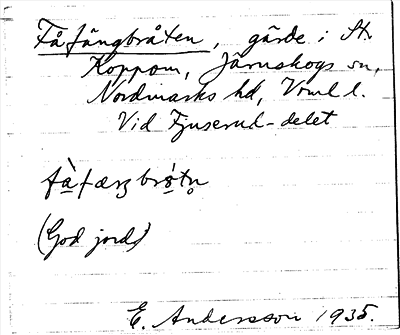 Fåfängbråten, gärde i St.
Koppom, Järnskogs sn,
Nordmarks hd, Vrml l.
Vid Fjuserud-delet
(God jord)
E. Andersson 1935.